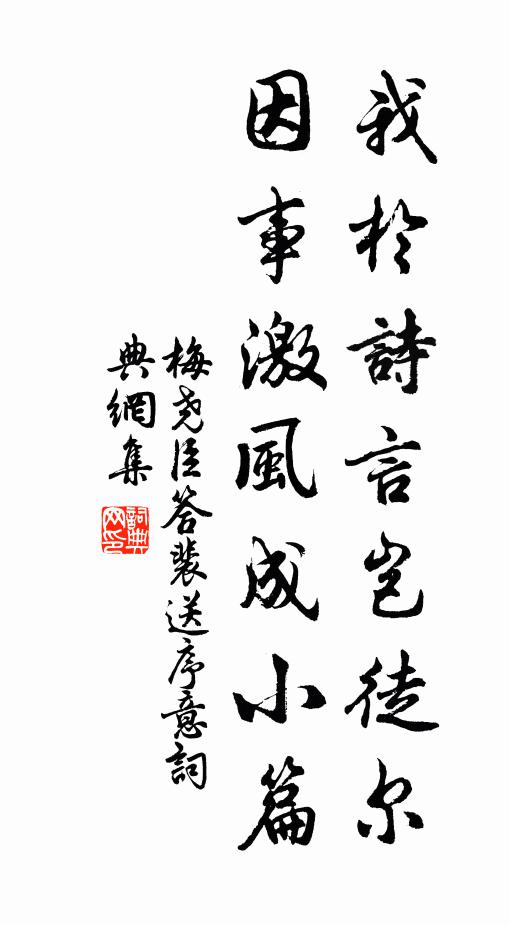 我於詩言岂徒尔
因事激風成小篇
梅尧臣答裴送序意詞
典網集
詞典网印